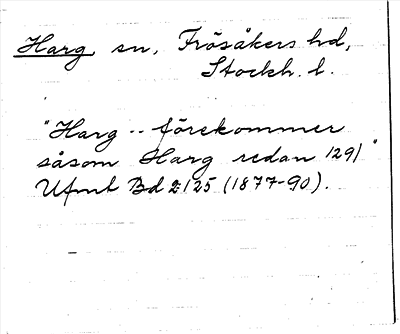 Harg, sn, Frösåkers hd,
Stockh. l.
"Harg -- förekommer
såsom Harg redan 1291"
Ufmt Bd 2:125 (1877-90).